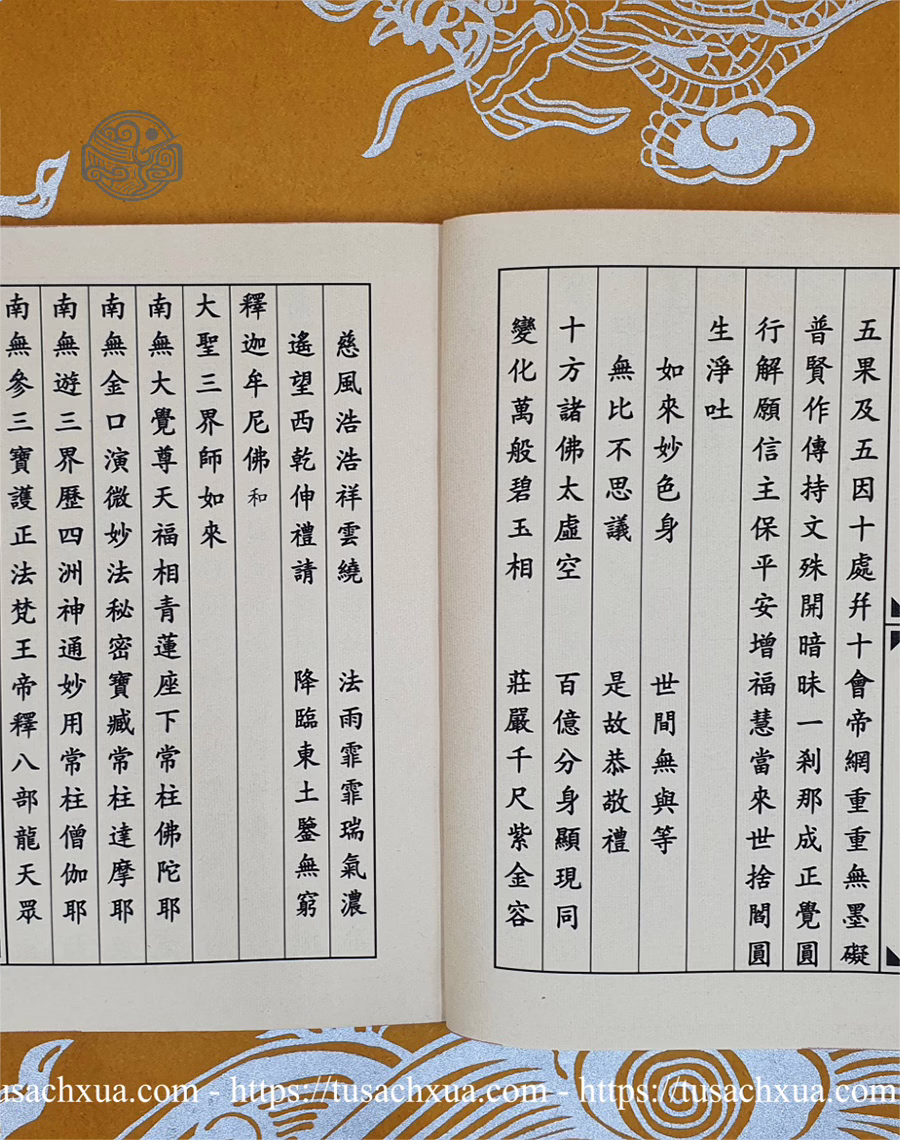 五果及五因十處幷十會帝網重重無墨礙
普賢作傳持文殊開暗昧一剎那成正覺圓
行解願信主保平安增福慧當來世捨閻圓
生淨吐
如來妙色身　世間無與等
無比不思議　是故恭敬禮
十方諸佛太虛空　百億分身顯現同
變化萬般碧玉相　莊嚴千尺紫金容
慈風浩浩祥雲繞　法雨霏霏瑞氣濃
遙望西乾伸禮請　降臨東土鑒無窮
釋迦牟尼佛和
大聖三界師如來
南無大覺尊天福相青蓮座下常柱佛陀耶
南無金口演微妙法秘密寶臧常柱達摩耶
南無遊三界歷四洲神通妙用常柱僧伽耶
南無參三寶護正法梵王帝釋八部龍天眾
usachxua.com - https://tusachxua.com - https://tusachxua.com